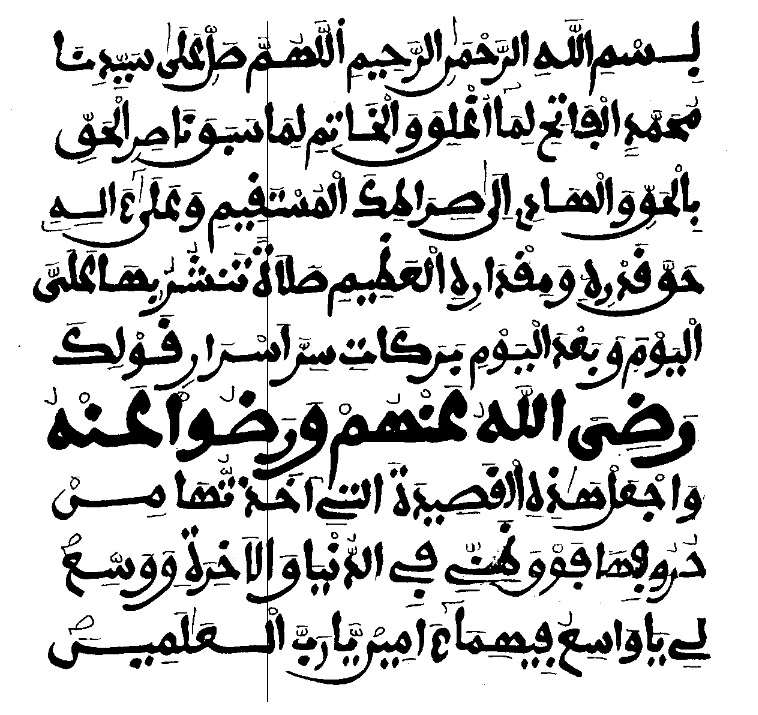 بِسْمِ اللَّهِ الرَّحْمَٰنِ الرَّحِيمِ اللَّهُمَّ صَلِّ عَلَىٰ سَيِّدِنَا
مُحَمَّدٍ الْفَاتِحِ لِمَا أُغْلِقَ وَالْخَاتِمِ لِمَا سَبَقَ نَاصِرِ الْحَقِّ
بِالْحَقِّ وَالْهَادِي إِلَىٰ صِرَاطِكَ الْمُسْتَقِيمِ وَعَلَىٰ ءَالِهِ
حَقَّ قَدْرِهِ وَمِقْدَارِهِ الْعَظِيمِ صَلَاةً تَنْشُرُ بِهَا عَلَيَّ
الْيَوْمَ وَبَعْدَ الْيَوْمِ بَرَكَاتِ سِرِّ أَسْرَارِ قَوْلِكَ
رَضِيَ اللَّهُ عَنْهُمْ وَرَضُوا عَنْهُ
وَاجْعَلْ هَٰذِهِ الْقَصِيدَةَ الَّتِي أَخَذْتُّهَا مِنْ
حُرُوفِهَا فَوْقَ ظَنِّي فِي الدُّنْيَا وَالْآخِرَةِ وَوَسِّعْ
لِي يَا وَاسِعُ فِيهِمَا ءَامِينَ يَا رَبَّ الْعَٰلَمِينَ